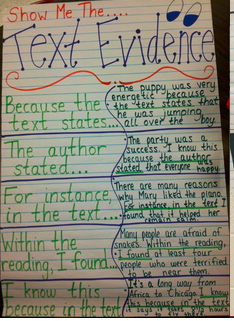 Show Me The....
Text Evidence
Because the
text states...
The puppy was very
energetic because
the text states that
he was jumping
all over the boy.
The author
stated...
The party was a
success. I know this
because the author
stated that everyone was happy.
For instance,
in the text...
There are many reasons
why Mary liked the piano.
For instance, in the text I
found that it helped her
Within the
reading, I found...
Many people are afraid of
snakes. Within the reading,
I found at least four
people who were terrified
to be near them.
I know this
because in the text
It's a long way from
Africa to Chicago. I know
this because in the text
it says it takes hours